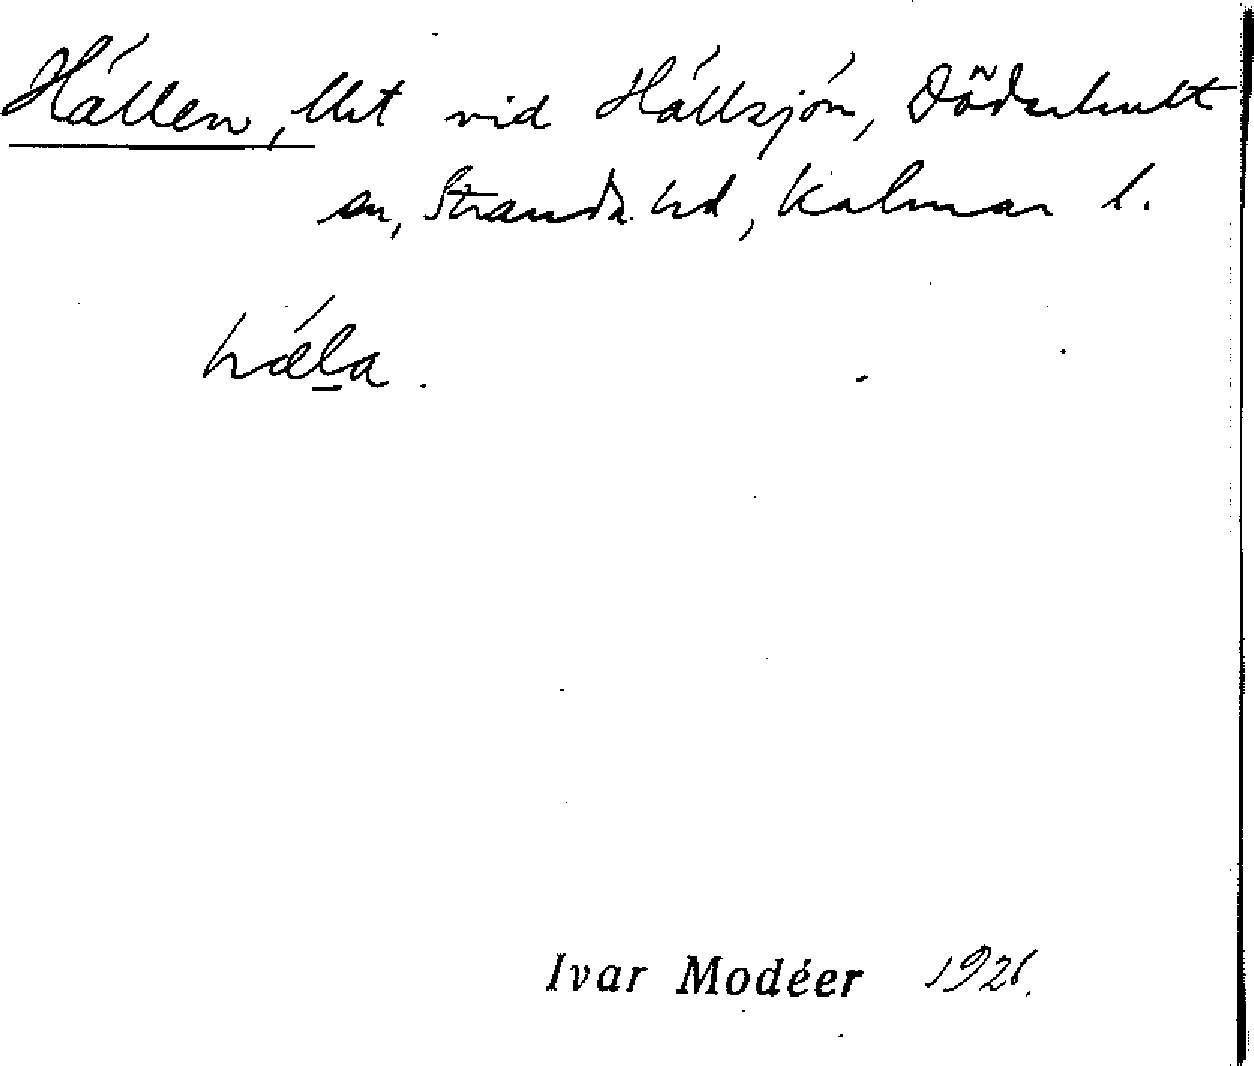 Hällen, lht vid Hällsjön, Döderhult
sn, Stranda hd, Kalmar l.
hǽla.
Ivar Modéer 1921.